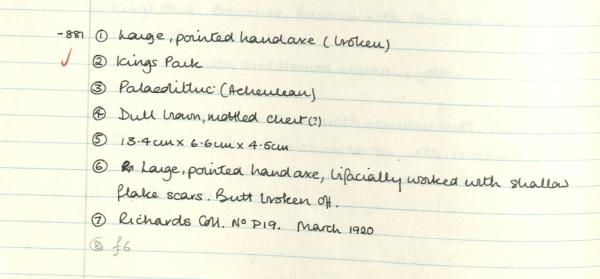 -881 ① Large, pointed handaxe (broken)
✓ ② Kings Park
③ Palaeolithic (Acheulean)
④ Dull brown, mottled chert (?)
⑤ 13.4cm x 6.6cm x 4.5cm
⑥ Large, pointed handaxe, bifacially worked with shallow
flake scars. Butt broken off.
⑦ Richards Coll. No P19. March 1920
⑧ £6